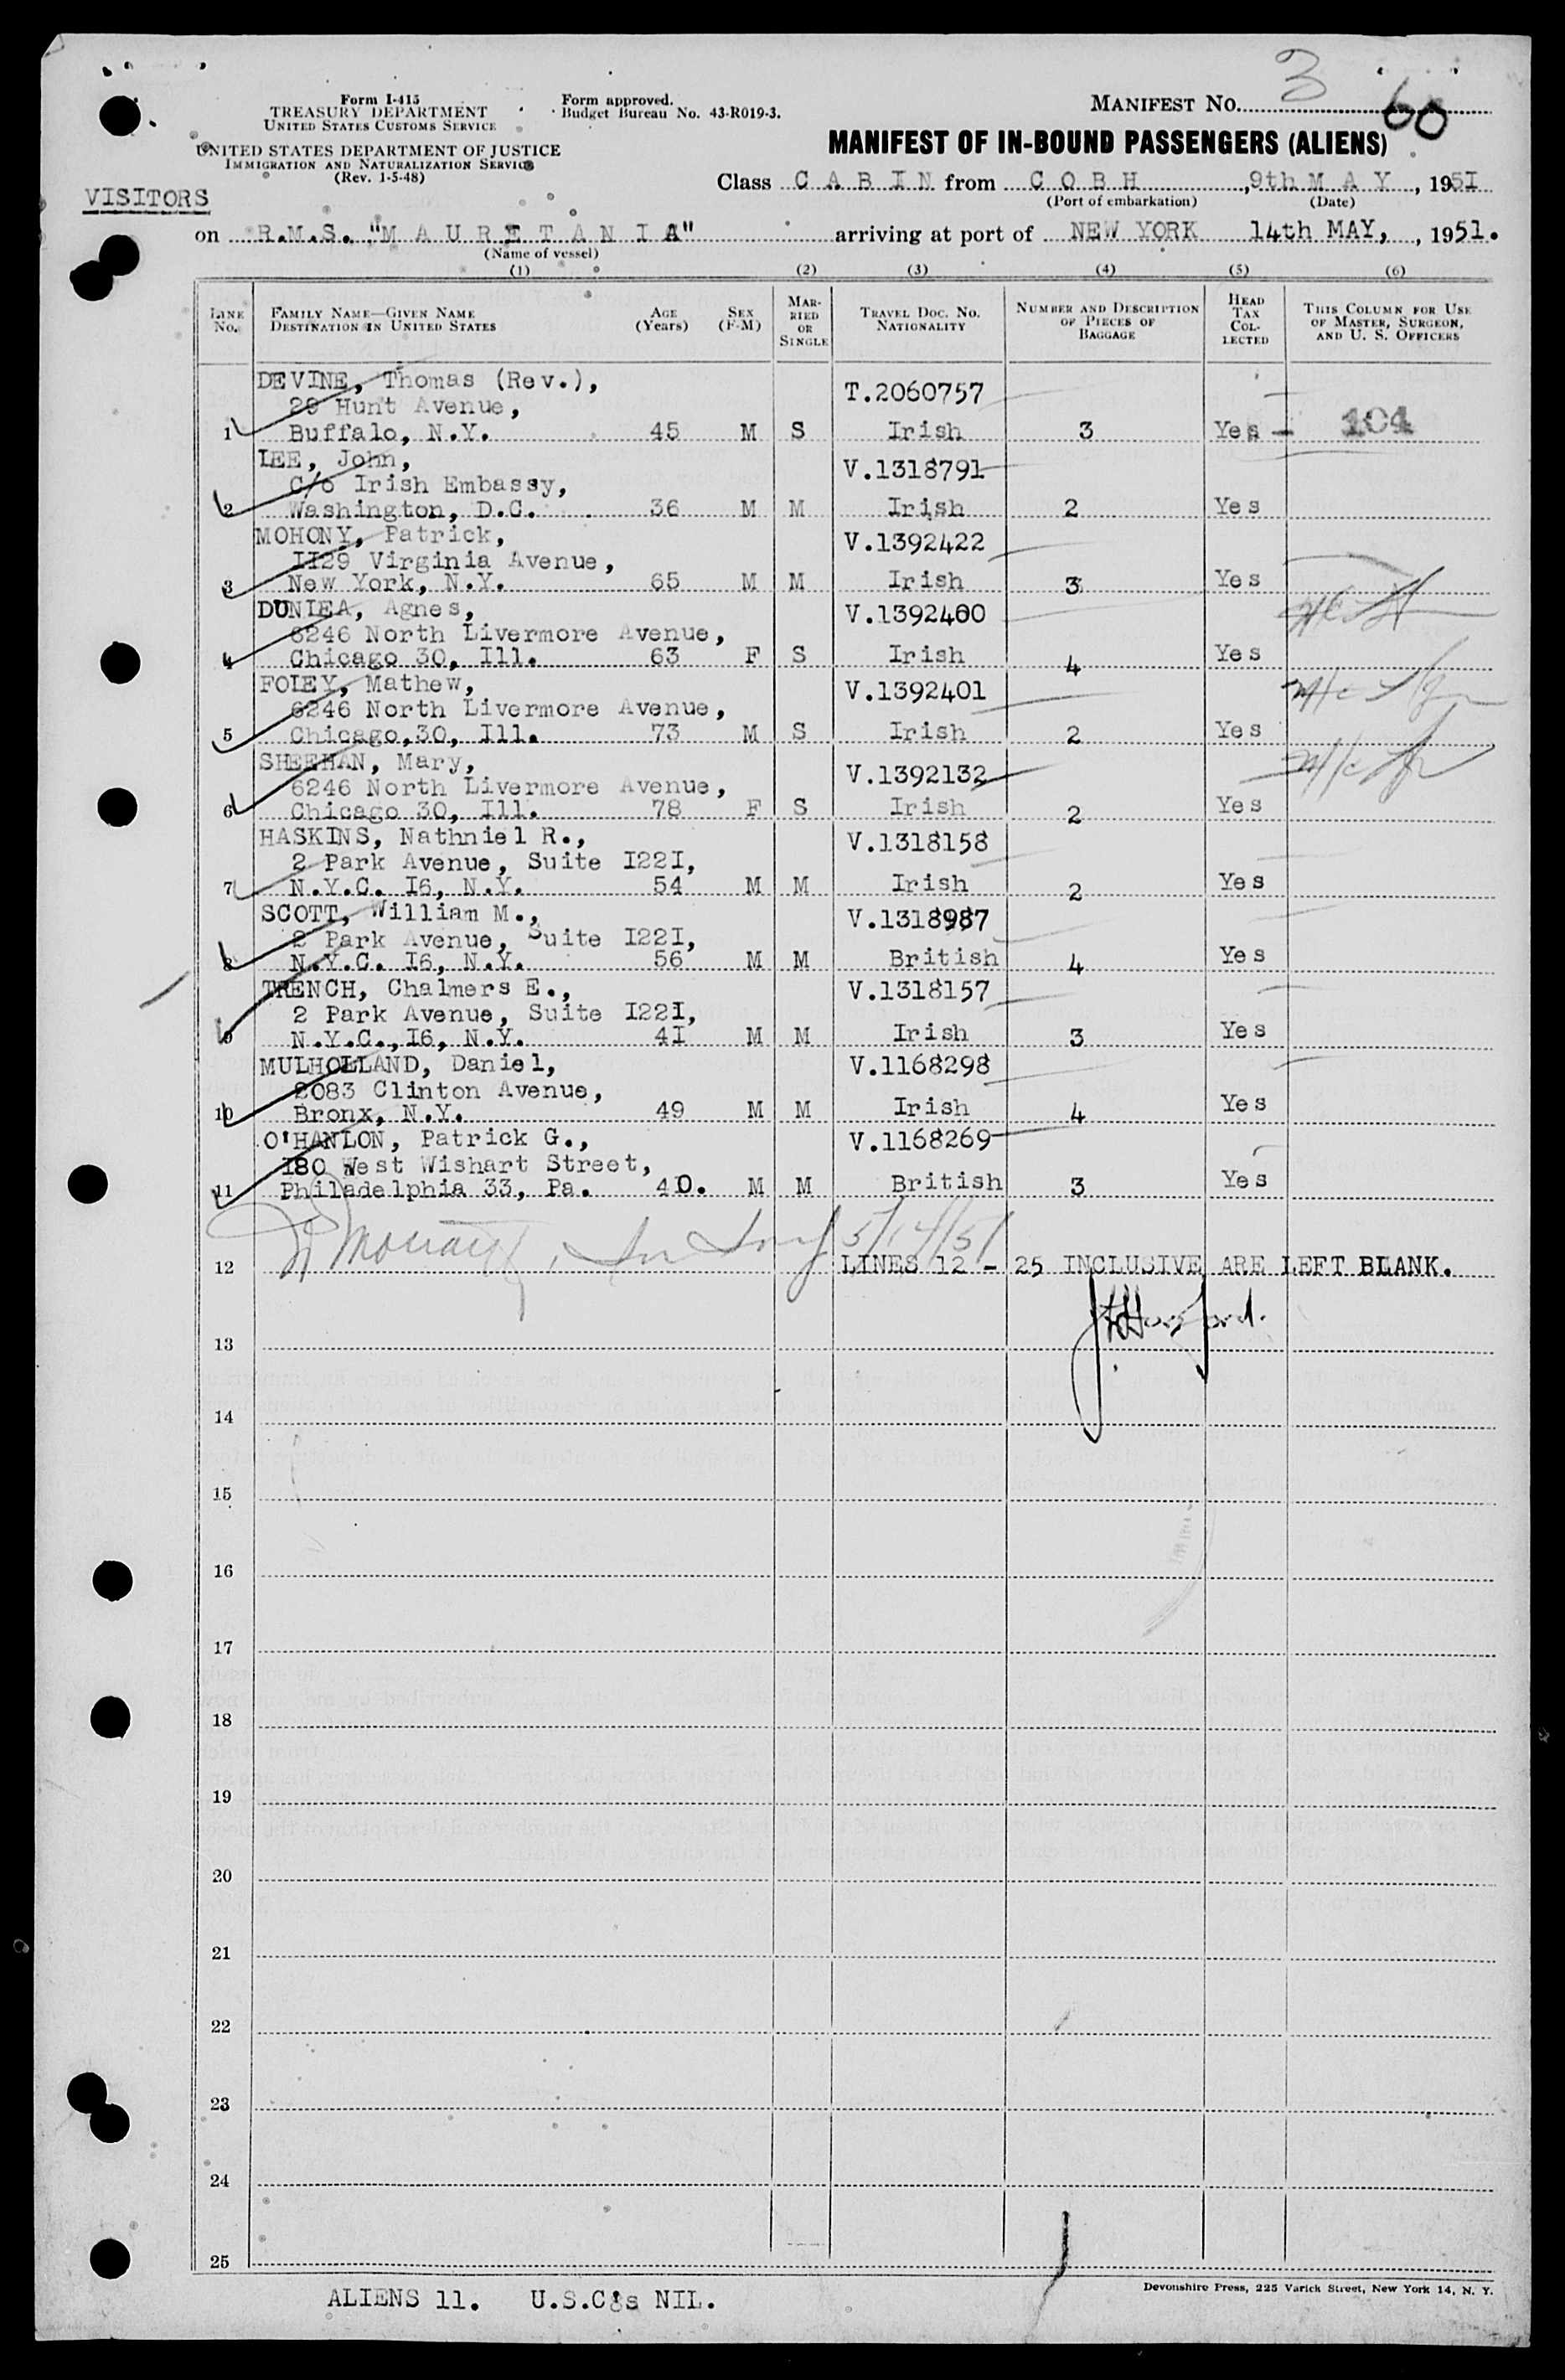 3
60
Form I-415
TREASURY DEPARTMENT
UNITED STATES CUSTOMS SERVICE
UNITED STATES DEPARTMENT OF JUSTICE
IMMIGRATION AND NATURALIZATION SERVICE
(Rev. 1-5-48)
Form approved.
Budget Bureau No. 43-R019-3.
MANIFEST NO.
MANIFEST OF IN-BOUND PASSENGERS (ALIENS)
VISITORS
Class CABIN from COBH, 9th MAY, 1951
(Port of embarkation) (Date)
on R.M.S. "MAURETANIA" arriving at port of NEW YORK 14th MAY, , 1951.
(Name of vessel)
(1) (2) (3) (4) (5) (6)
LINE NO. FAMILY NAME—GIVEN NAME DESTINATION IN UNITED STATES AGE (Years) SEX (F-M) MARRIED OR SINGLE TRAVEL DOC. NO. NATIONALITY NUMBER AND DESCRIPTION OF PIECES OF BAGGAGE HEAD TAX COLLECTED THIS COLUMN FOR USE OF MASTER, SURGEON, AND U. S. OFFICERS
DEVINE, Thomas (Rev.), T.2060757
29 Hunt Avenue,
1 Buffalo, N.Y. 45 M S Irish 3 Yes - 104
LEE, John, V.1318791
C/o Irish Embassy,
2 Washington, D.C. 36 M M Irish 2 Yes
MOHONY, Patrick, V.1392422
1129 Virginia Avenue,
3 New York, N.Y. 65 M M Irish 3 Yes
DUNIEA, Agnes, V.1392400
6246 North Livermore Avenue,
4 Chicago 30, Ill. 63 F S Irish 4 Yes
FOLEY, Mathew, V.1392401
6246 North Livermore Avenue,
5 Chicago,30, Ill. 73 M S Irish 2 Yes
SHEEHAN, Mary, V.1392132
6246 North Livermore Avenue,
6 Chicago 30, Ill. 78 F S Irish 2 Yes
HASKINS, Nathniel R., V.1318158
2 Park Avenue, Suite I22I,
7 N.Y.C. I6, N.Y. 54 M M Irish 2 Yes
SCOTT, William M., V.1318987
2 Park Avenue, Suite I22I,
8 N.Y.C. I6, N.Y. 56 M M British 4 Yes
TRENCH, Chalmers E., V.1318157
2 Park Avenue, Suite I22I,
9 N.Y.C.,I6, N.Y. 4I M M Irish 3 Yes
MULHOLLAND, Daniel, V.1168298
2083 Clinton Avenue,
10 Bronx, N.Y. 49 M M Irish 4 Yes
O'HANLON, Patrick G., V.1168269
180 West Wishart Street,
11 Philadelphia 33, Pa. 40. M M British 3 Yes
5/14/51
12 LINES 12 - 25 INCLUSIVE ARE LEFT BLANK.
13
14
15
16
17
18
19
20
21
22
23
24
25
ALIENS 11. U.S.C's NIL.
Devonshire Press, 225 Varick Street, New York 14, N. Y.